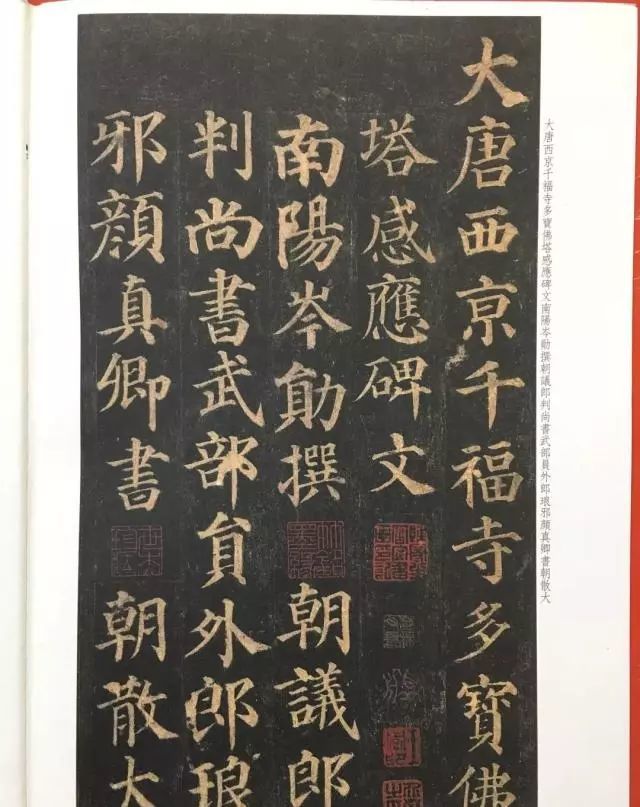 大唐西京千福寺多寶佛
塔感應碑文
南陽岑勛撰朝議郎
判尚書武部員外郎琅
邪顏真卿書朝散大
大唐西京千福寺多寶佛塔感應碑文南陽岑勛撰朝議郎判尚書武部員外郎琅邪顏真卿書朝散大